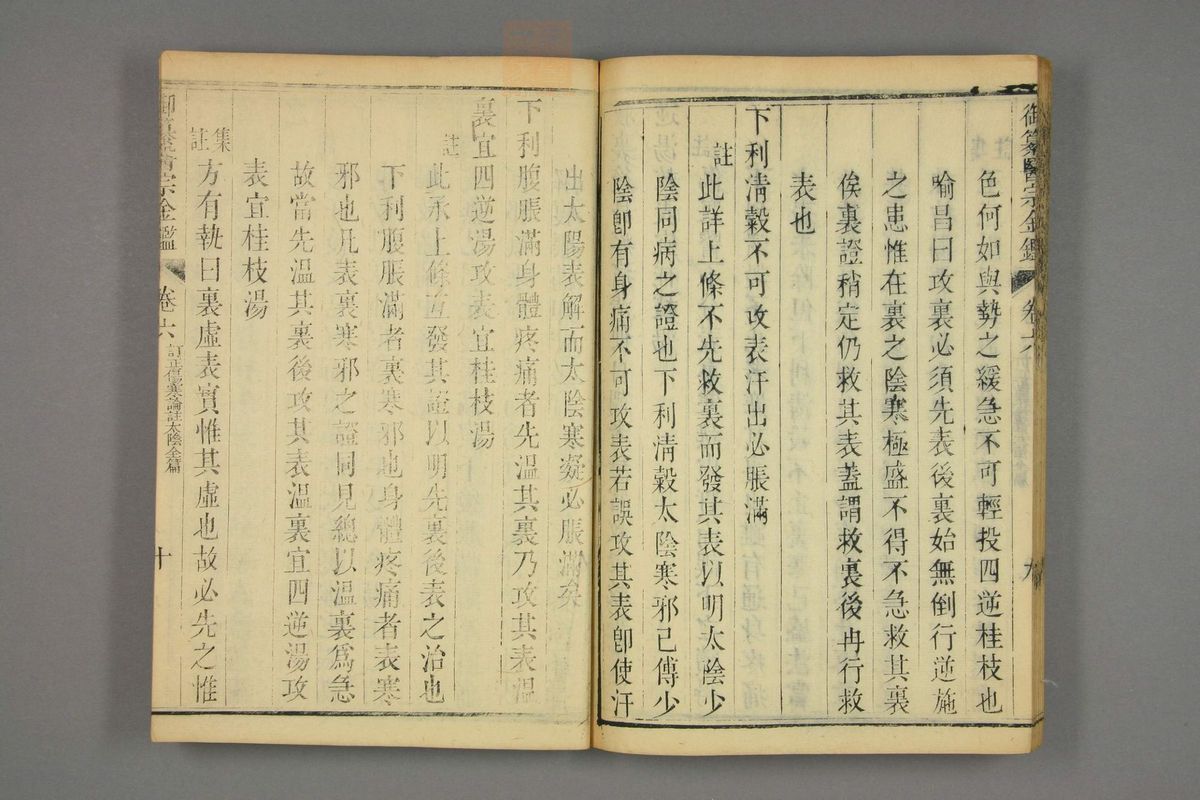 御纂醫宗金鑑 卷六 九
色何如與勢之緩急不可輕投四逆桂枝也
喻昌曰攻裏必須先表後裏始無倒行逆施
之患惟在裏之陰寒極盛不得不急救其裏
俟裏證稍定仍救其表蓋謂救裏後冉行救
表也
下利淸穀不可攻表汗出必脹滿
註此詳上條不先救裏而發其表以明太陰少
陰同病之證也下利淸穀太陰寒邪已傳少
陰卽有身痛不可攻表若誤攻其表卽使汗
出太陽表解而太陰寒凝必脹滿矣
下利腹脹滿身體疼痛者先溫其裏乃攻其表溫
裏宜四逆湯攻表宜桂枝湯
註此承上條互發其證以明先裏後表之治也
下利腹脹滿者裏寒邪也身體疼痛者表寒
邪也凡表裏寒邪之證同見總以溫裏爲急
故當先溫其裏後攻其表溫裏宜四逆湯攻
表宜桂枝湯
集註方有執曰裏虛表實惟其虛也故必先之惟
御纂醫宗金鑑 卷六 訂正傷寒論註太陰全篇 十